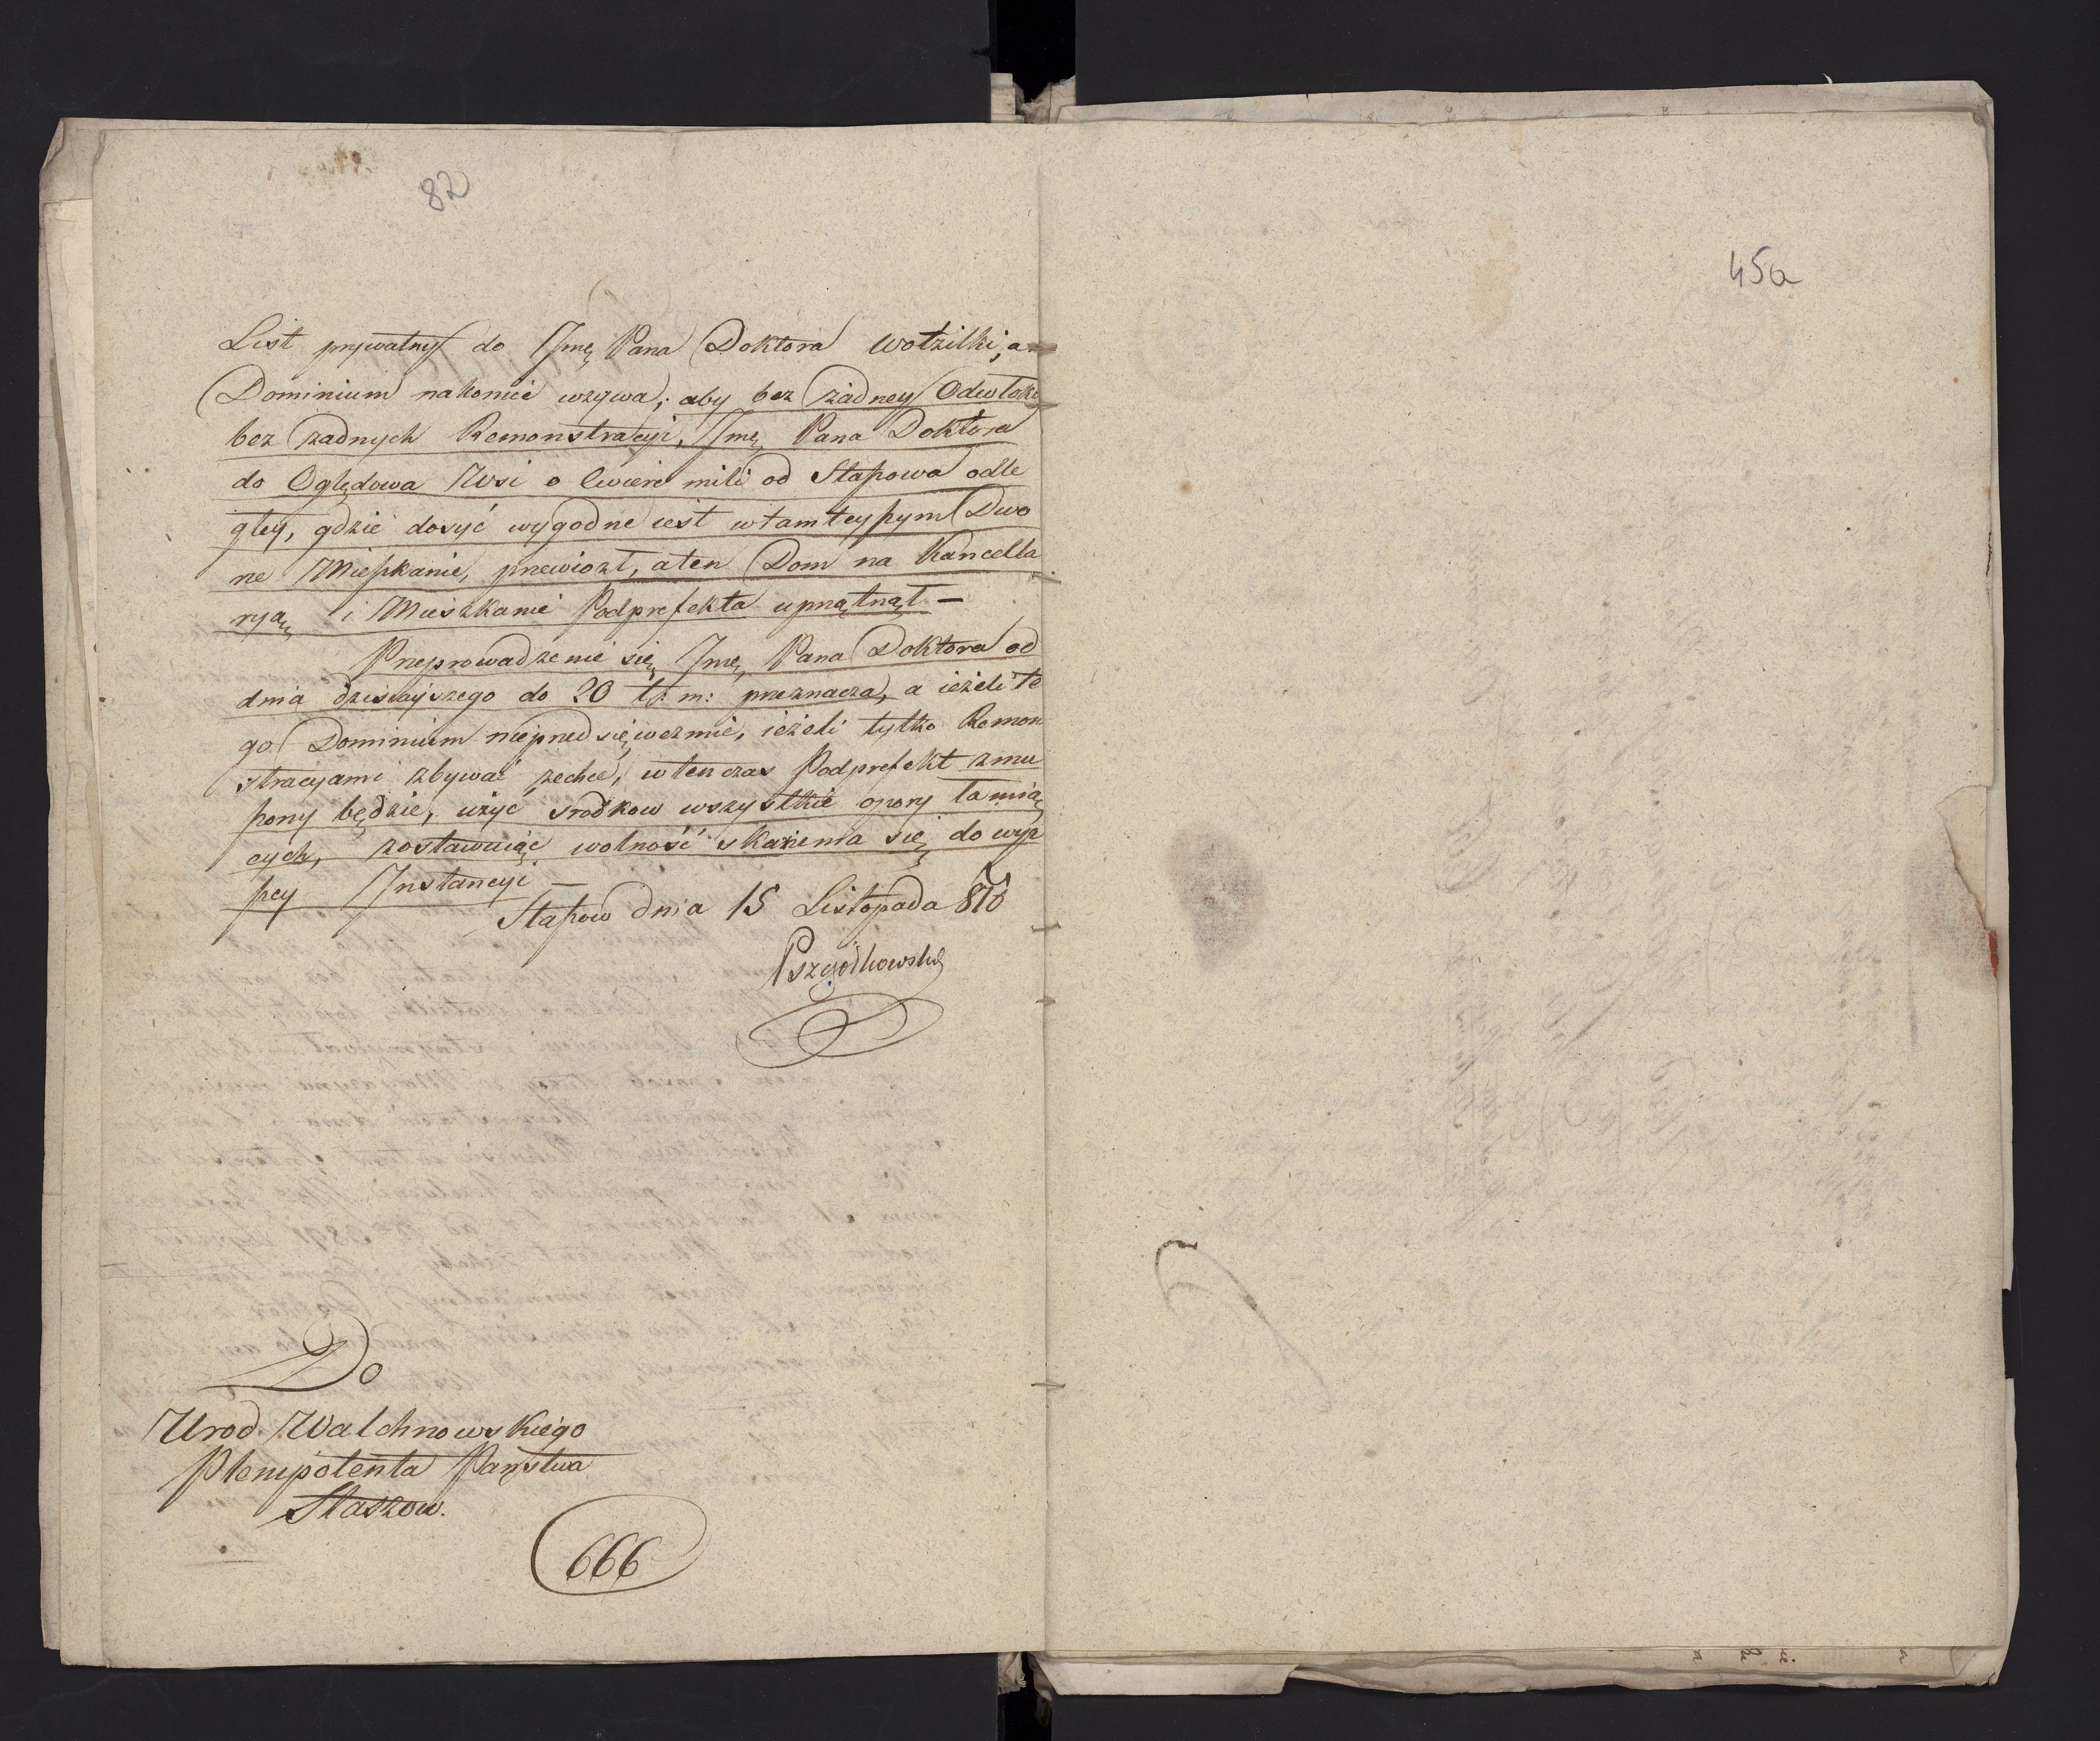 82
45a
List prywatny do Jmę Pana Doktora Wotzilki, a
Dominium nakonieć wzywa, aby bez żadney Odwłoki
bez żadnych Remonstracyi, Jmę Pana Doktora
do Oględowa Wsi o ćwierć mili od Staszowa odle
głey, gdzie dosyć wygodne iest w tamteyszym Dwo
rze Mieszkanie, przewiozł, a ten Dom na Kancella
ryą i Mieszkanie Podprefekta uprzątnął —
Przeprowadzenie się Jmę Pana Doktora od
dnia dzisiayszego do 20 t. m: przeznacza, a ieżeli te
go Dominium nieprzedsięwezmie, ieżeli tylko Remon
stracyami zbywać zechce, wtenczas Podprefekt zmu
szony będzie, użyć srodkow wszystkie opory łamią
cych, zostawuiąc wolność skarżenia się do wyż
szey Instancyi —
Staszow dnia 15 Listopada 810
Do
Urod. Walchnowskiego
Plenipotenta Państwa
Staszow.
666